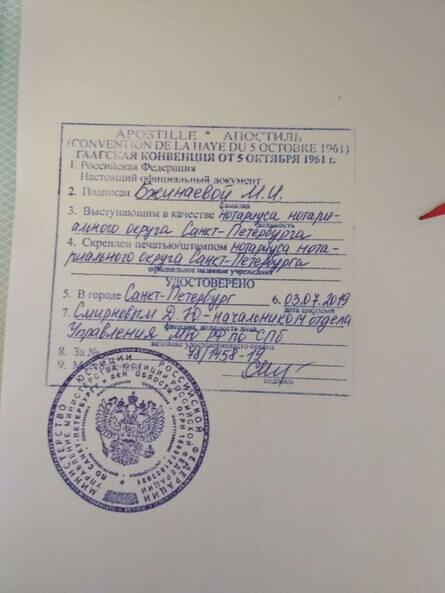 APOSTILLE * АПОСТИЛЬ
(CONVENTION DE LA HAYE DU 5 OCTOBRE 1961)
ГААГСКАЯ КОНВЕНЦИЯ ОТ 5 ОКТЯБРЯ 1961 г.
1. Российская Федерация
Настоящий официальный документ
2. Подписан Бжинаевой М.И.
фамилия
3. Выступающим в качестве нотариуса нотари-
должность
ального округа Санкт-Петербурга
4. Скреплен печатью/штампом нотариуса нота-
риального округа Санкт-Петербурга
официальное название учреждения
УДОСТОВЕРЕНО
5. В городе Санкт-Петербург 6. 03.07.2019
дата цифрами
7. Смирновым Д.Ю.-начальником отдела
фамилия, должность
Управления МЮ РФ по СПб
название удостоверяющего органа
8. За № 78/1458-19
9.
подпись
МИНИСТЕРСТВО ЮСТИЦИИ РОССИЙСКОЙ ФЕДЕРАЦИИ